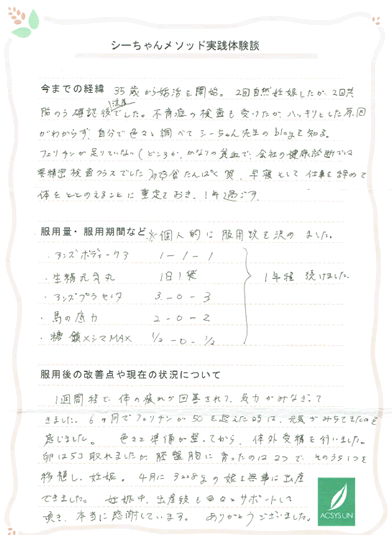 シーちゃんメソッド実践体験談
今までの経緯 35歳から妊活を開始。2回自然妊娠したが、2回共
胎のう確認後流産でした。不育症の検査も受けたが、ハッキリとした原因
がわからず、自分で色々と調べてシーちゃん先生のblogを知る。
フェリチンが足りていない(どころか、かなりの貧血で、会社の健康診断では
要精密検査クラスでした)
体をととのえることに重点をおき、1年過ごす。
服用量・服用期間など ※個人的に服用数を決めました。
1-1-1
・生精元気丸 1日1袋
・アンズプラセンタ 3-0-3
・馬の底力 2-0-2
・糖鎖×シマMAX ½-0-½
1年程続けました。
服用後の改善点や現在の状況について
1週間程で体の疲れが回善されて、底力がみなぎって
きました。6ヶ月でフェリチンが50を超えた時は、元気がみちてきたのを
感じました。色々と準備が整ってから、体外受精を行いました。
卵は53取れましたが胚盤胞に育ったのは2つで、そのうち1つを
移植し、妊娠。4月に3228gの娘を無事に出産
できました。妊娠中、出産後も色々とサポートして
頂き、本当に感謝しています。ありがとうございました。
ACSYSUN